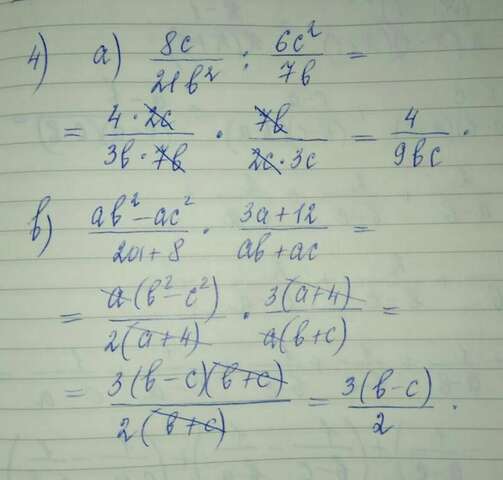 4) а) 8c/21b² : 6c²/7b =
= 4·2c/3b·7b · 7b/2c·3c = 4/9bc.
в) ab²-ac²/2a+8 · 3a+12/ab+ac =
= a(b²-c²)/2(a+4) · 3(a+4)/a(b+c) =
= 3(b-c)(b+c)/2(b+c) = 3(b-c)/2.